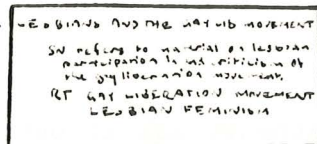 LESBIANS AND THE GAY LIB MOVEMENT
SN refers to material on lesbian
participation in and criticism of
the gay liberation movement.
RT GAY LIBERATION MOVEMENT
LESBIAN FEMINISM